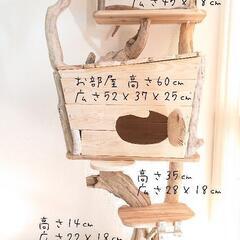 広さ45×18cm
お部屋 高さ60cm
広さ52×37×25cm
高さ35cm
広さ28×18cm
高さ14cm
広さ22×18cm